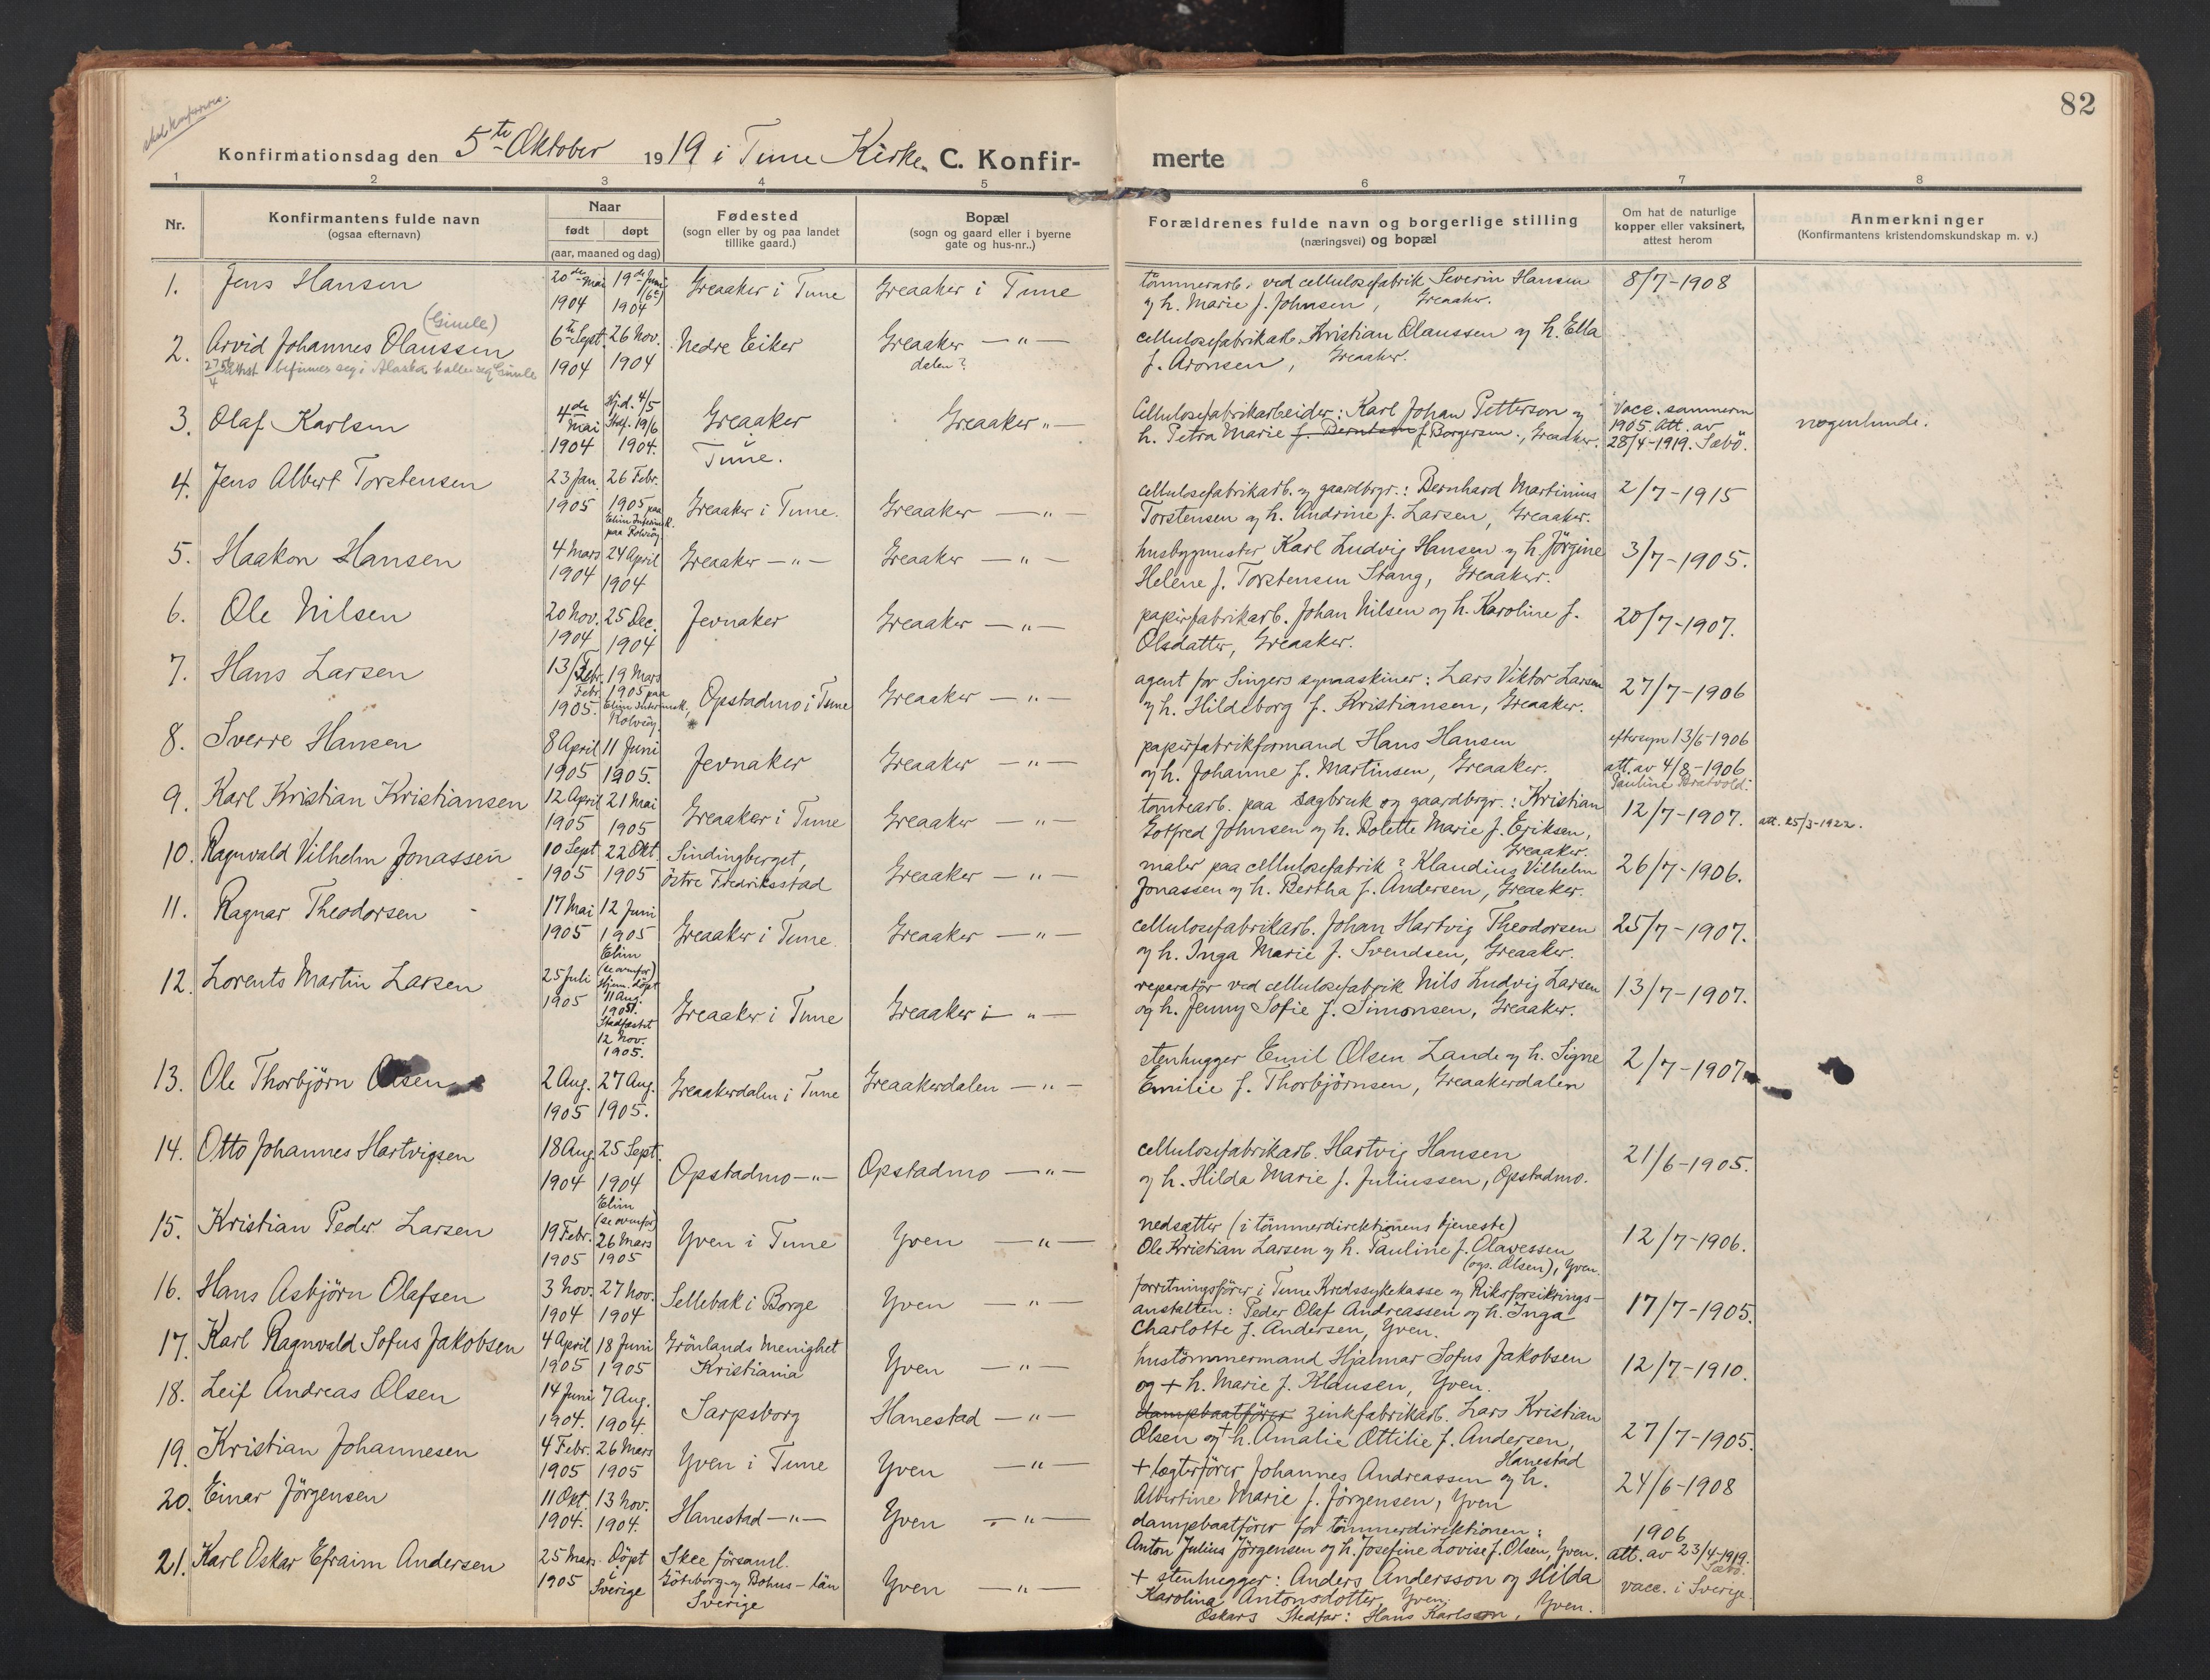 82
Konfirmationsdag den 5te Oktober 1919 i Tune Kirke. C. Konfir-
merte
1 2 3 4 5 6 7 8
Nr.
Konfirmantens fulde navn
(ogsaa efternavn)
Naar
født døpt
(aar, maaned og dag)
Fødested
(sogn eller by og paa landet
tillike gaard.)
Bopæl
(sogn og gaard eller i byerne
gate og hus-nr..)
Forældrenes fulde navn og borgerlige stilling
(næringsvei) og bopæl
Om hat de naturlige
kopper eller vaksinert,
attest herom
Anmerkninger
(Konfirmantens kristendomskundskap m. v.)
1. Jens Hansen 20de Mai 1904 19de Juni 1904 Greaaker i Tune Greaaker i Tune
tömmerarb. ved cellulosefabrik Severin Hansen
og h. Marie f. Johnsen, Greaaker. 8/7-1908
(Gimle)
2. Arvid Johannes Olaussen 6te Sept. 1904 26 Nov. 1904 Nedre Eiker Greaaker —"—
dalen?
befinnes seg i Alaska kaller seg Gimle
cellulosefabrikarb. Kristian Olaussen og h. Ella
f. Aronsen, Greaaker.
3. Olaf Karlsen 4de Mai 1904 Hj.d. 4/5 Stadf. 19/6 1904. Greaaker Tune. Greaaker "—
Cellulosefabrikarbeider: Karl Johan Petterson og
h. Petra Marie f. Berntsen f. Borgersen., Greaaker.
Vacc. sommeren
1905 Att. av
28/4-1919. Sæbö.
nogenlunde.
4. Jens Albert Torstensen 23 Jan. 1905 26 Febr. 1905 paa Elim paa Rolvsöy Greaaker i Tune. Greaaker —"—
cellulosefabrikarb. og gaardbrgr.: Bernhard Martinius
Torstensen og h. Andrine f. Larsen, Greaaker. 2/7-1915
5. Haakon Hansen 4 Mars 1904 24 April 1904 Greaaker —"— Greaaker —"—
husbygmester Karl Ludvig Hansen og h. Jörgine
Helene f. Torstensen Stang, Greaaker. 3/7-1905.
6. Ole Nilsen 20 Nov. 1904 25 Dec. 1904 Jevnaker Greaaker —"—
papirfabrikarb. Johan Nilsen og h. Karoline f.
Olsdatter, Greaaker. 20/7-1907.
7. Hans Larsen 13 Febr. 1905. 19 Mars 1905 paa Elim Rolvsöy Opstadmo i Tune Greaaker —"—
agent for Singers symaskiner: Lars Viktor Larsen
og h. Hildeborg f. Kristiansen, Greaaker. 27/7-1906
8. Sverre Hansen 8 April 1905 11 Juni 1905. Jevnaker Greaaker —"—
papirfabrikformand Hans Hansen
og h. Johanne f. Martinsen, Greaaker.
eftersyn 13/6-1906
att. av 4/8-1906
Pauline Bratvold.
9. Karl Kristian Kristiansen 12 April 1905 21 Mai 1905 Greaaker i Tune Greaaker —"—
tomtearb. paa sagbruk og gaardbrgr.: Kristian
Gotfred Johnsen og h. Bolette Marie f. Eriksen,
Greaaker. 12/7-1907. att. 25/3-1922.
10. Ragnvald Vilhelm Jonassen 10 Sept 1905 22 Okt 1905 Sindingberget, Östre Fredriksstad Greaaker —"—
maler paa cellulosefabrik? Klaudius Vilhelm
Jonassen og h. Bertha f. Andersen, Greaaker. 26/7-1906.
11. Ragnar Theodorsen 17 Mai 1905 12 Juni 1905 Elim (se ovenfor) Greaaker i Tune Greaaker —"—
cellulosefabrikarb. Johan Hartvig Theodorsen
og h. Inga Marie f. Svendsen, Greaaker. 25/7-1907.
12. Lorents Martin Larsen 25 Juli 1905 Hjem. döpt 11 Aug. 1905. Stadfæstet 12 Nov. 1905. Greaaker i Tune Greaaker i —"—
reparatör ved cellulosefabrik Nils Ludvig Larsen
og h. Jenny Sofie f. Simonsen, Greaaker. 13/7-1907.
13. Ole Thorbjörn Olsen 2 Aug. 1905 27 Aug. 1905. Greaakerdalen i Tune Greaakerdalen —"—
stenhugger Emil Olsen Lande og h. Signe
Emilie f. Thorbjörnsen, Greaakerdalen 2/7-1907
14. Otto Johannes Hartvigsen 18 Aug. 1904 25 Sept. 1904 Opstadmo —"— Opstadmo —"—
cellulosefabrikarb. Hartvig Hansen
og h. Hilda Marie f. Juliussen, Opstadmo. 21/6-1905.
15. Kristian Peder Larsen 19 Febr. 1905 Elim (se ovenfor) 26 Mars 1905 Yven i Tune Yven —"—
nedsætter (i tömmerdirektionens tjeneste)
Ole Kristian Larsen og h. Pauline f. Olavessen
(ogs. Olsen), Yven. 12/7-1906.
16. Hans Asbjörn Olafsen 3 Nov. 1904 27 Nov. 1904 Sellebak i Borge Yven —"—
forretningsförer i Tune Kredssykekasse og Riksforsikrings-
anstalten: Peder Olaf Andreassen og h. Inga
Charlotte f. Andersen, Yven. 17/7-1905.
17. Karl Ragnvald Sofus Jakobsen 4 April 1905 18 Juni 1905 Grönlands Menighet Kristiania Yven —"—
hustömmermand Hjalmar Sofus Jakobsen
og + h. Marie f. Klausen, Yven. 12/7-1910.
18. Leif Andreas Olsen 14 Juni 1904. 7 Aug. 1904. Sarpsborg Hanestad —"—
dampbaatförer zinkfabrikarb. Lars Kristian
Olsen og + h. Amalie Ottilie f. Andersen,
Hanestad 27/7-1905.
19. Kristian Johannesen 4 Febr. 1905 26 Mars 1905 Yven i Tune Yven —"—
+ lægterförer Johannes Andreassen og h.
Albertine Marie f. Jörgensen, Yven 24/6-1908
20. Einar Jörgensen 11 Okt. 1904. 13 Nov. 1904. Hanestad —"— Yven —"—
dampbaatförer for tömmerdirektionen:
Anton Julius Jörgensen og h. Josefine Lovise f. Olsen, Yven.
1906
att. av 23/4-1919.
Sæbö.
21. Karl Oskar Efraim Andersen 25 Mars 1905 Döpt i Sverige Skee församl. Göteborg og Bohus-län Sverige Yven —"—
+ stenhugger: Anders Andersson og Hilda
Karolina Antonsdotter, Yven.
Oskars Stedfar: Hans Karlsson, Yven.
vacc. i Sverige